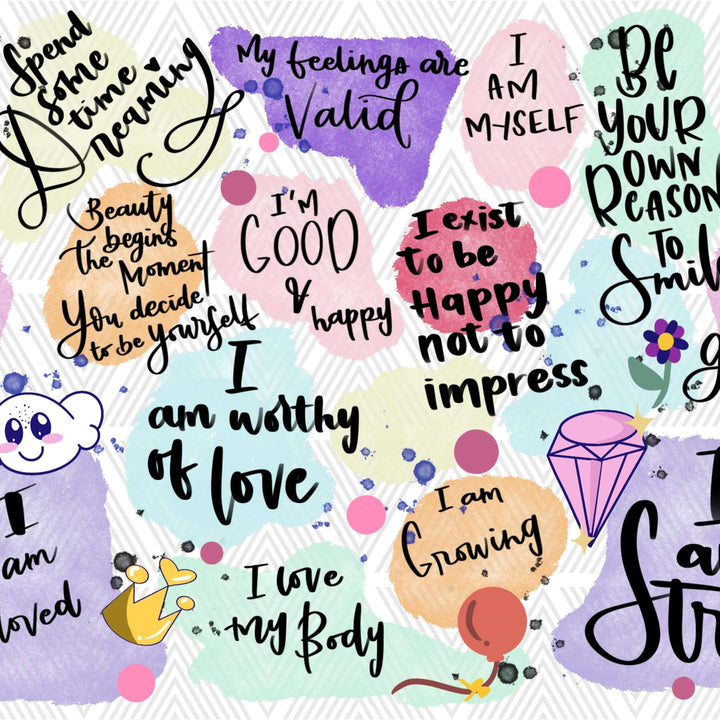 Spend
some
time
Dreaming
My feelings are
Valid
I
AM
MYSELF
BE
YOUR
OWN
REASON
TO
Smile
Beauty
begins
the Moment
You decide
to be yourself
I'M
GOOD
&
happy
I exist
to be
Happy
not to
impress
I
am worthy
of love
I
am
loved
I am
Growing
I love
my Body
I